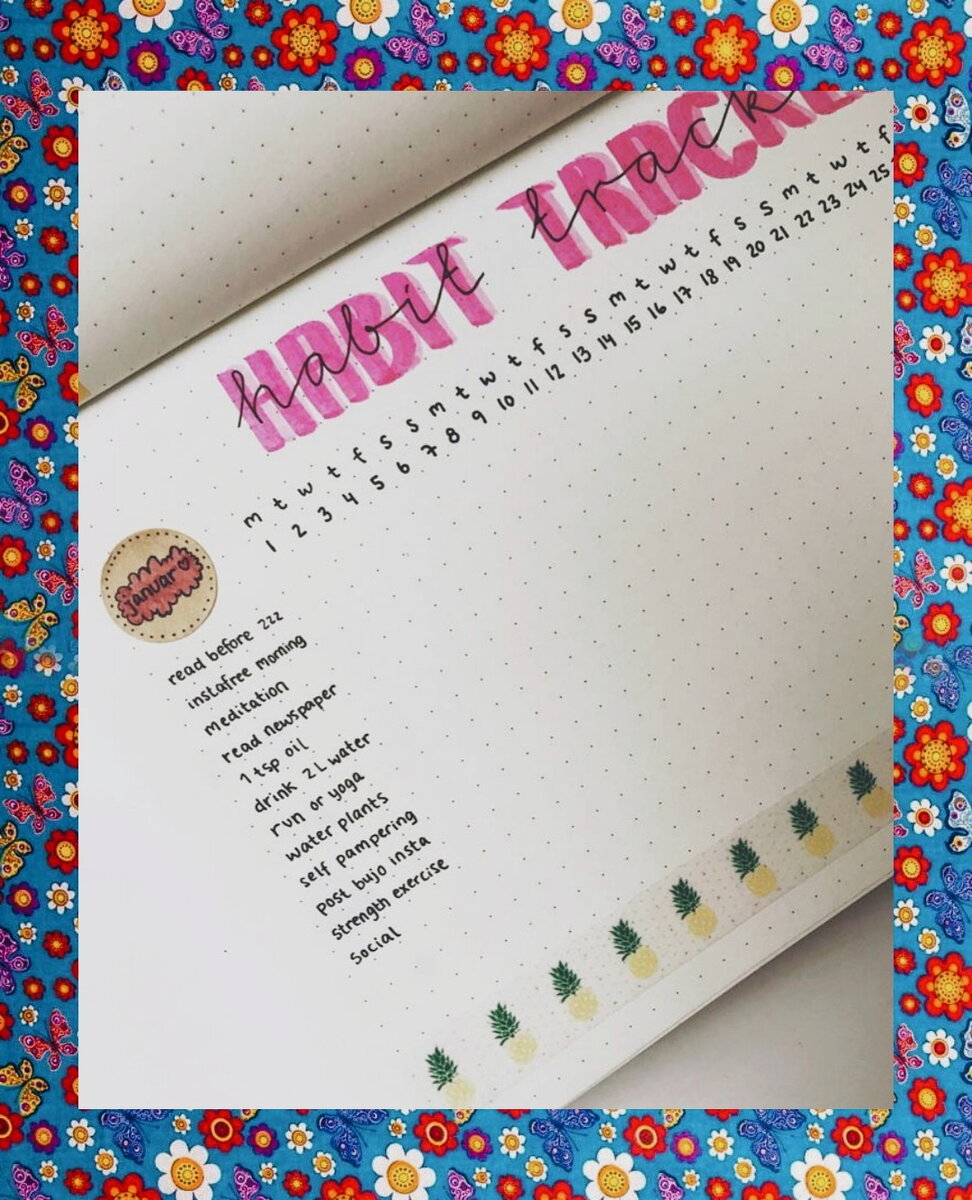 HABIT TRACKE
habit track
m t w t f s s m t w t f s s m t w t f s s m t w t f
1 2 3 4 5 6 7 8 9 10 11 12 13 14 15 16 17 18 19 20 21 22 23 24 25
januar ♡
read before zzz
instafree morning
meditation
read newspaper
1 tsp oil
drink 2L water
run or yoga
water plants
self pampering
post bujo insta
strength exercise
social